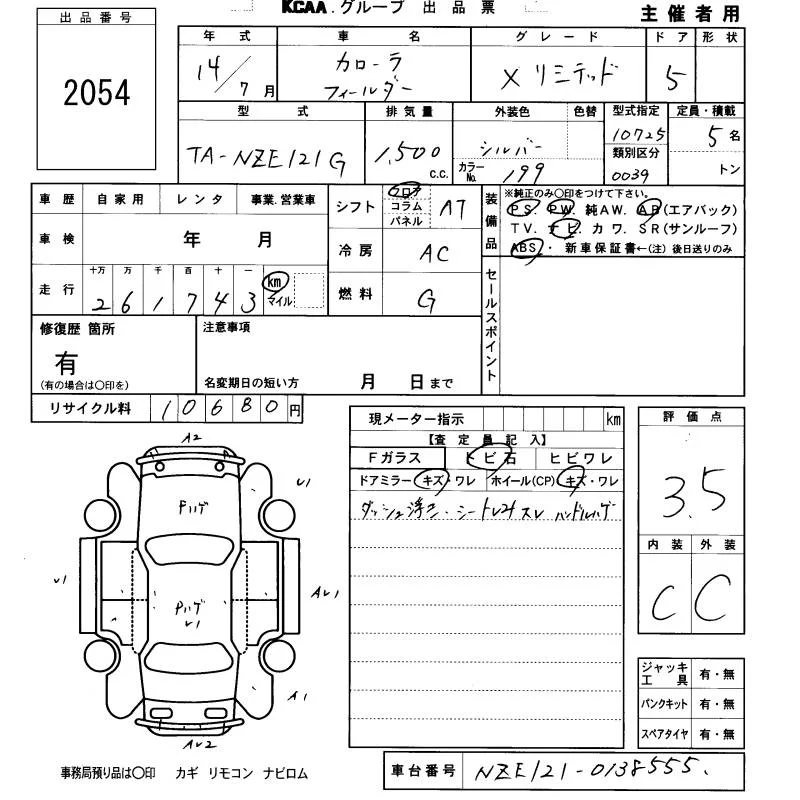 KCAA.グループ 出品票
主催者用
出品番号
2054
年式 車名 グレード ドア 形状
14/7月 カローラ フィールダー X リミテッド 5
型式 排気量 外装色 色替 型式指定 定員・積載
TA-NZE121G 1,500 c.c. シルバー カラーNo. 199 10725 5名
類別区分
0039 トン
車歴 自家用 レンタ 事業.営業車
車検 年 月
走行 十万 万 千 百 十 一
2 6 1 7 4 3 km マイル
シフト フロア コラム パネル AT
冷房 AC
燃料 G
装備品
※純正のみ〇印をつけて下さい。
PS. PW. 純AW. AB(エアバック)
TV. ナビ. カワ. SR(サンルーフ)
ABS・ 新車保証書←(注) 後日送りのみ
セールスポイント
修復歴 箇所
有
(有の場合は〇印を)
注意事項
名変期日の短い方 月 日まで
リサイクル料 10680円
現メーター指示 km
【査定員記入】
Fガラス トビ石 ヒビワレ
ドアミラー キズ・ワレ ホイール(CP) キズ・ワレ
ダッシュ浮き・シートヒス スレ ハンドルハゲ
評価点
3.5
内装 外装
C C
A2
U1
Pハゲ
U1
Pハゲ
U1
AU1
A1
AU2
ジャッキ工具 有・無
パンクキット 有・無
スペアタイヤ 有・無
事務局預り品は〇印 カギ リモコン ナビロム
車台番号 NZE121-0138555.